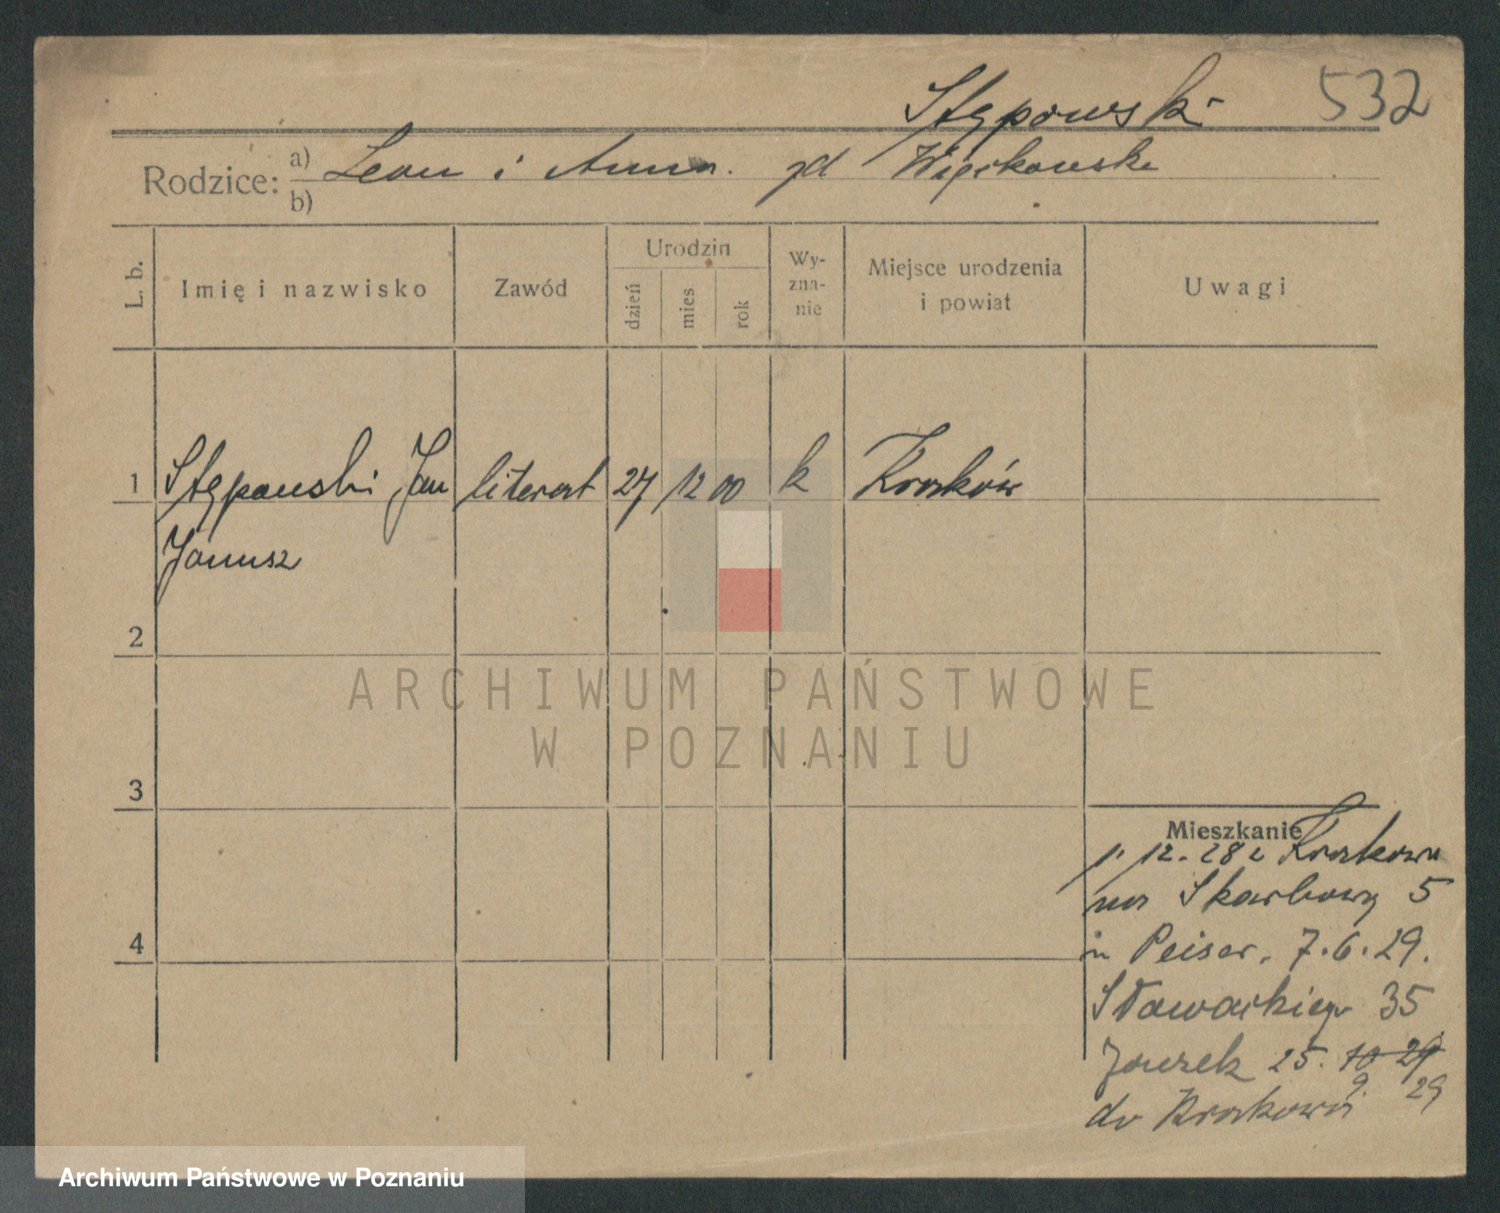 532
Stępowski
Rodzice: a) Leon i Anna. zd Więckowska
b)
L. b. Imię i nazwisko Zawód Urodzin dzień mies. rok Wy-zna-nie Miejsce urodzenia i powiat Uwagi
1 Stępowski Jan literat 27 12 00 k Kraków
Janusz
2
ARCHIWUM PAŃSTWOWE
W POZNANIU
3
Mieszkanie
1. 12. 28 z Krakowa
na Skarbową 5
Peiser. 7.6.29.
Słowackiego 35
25. 10 29
9 29
do Krakowa
4
Archiwum Państwowe w Poznaniu